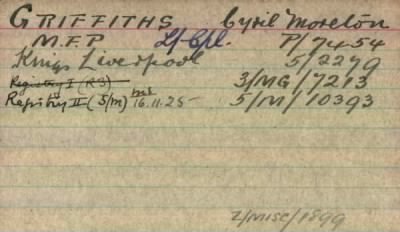 GRIFFITHS Cyril Moreton
M.F.P L/Cpl. P/7454
Kings Liverpool 5/2279
Registry I (R3) 3/MG/7213
Registry II (S/M) 16.11.25 5/M/10393
Z/MISC/1899